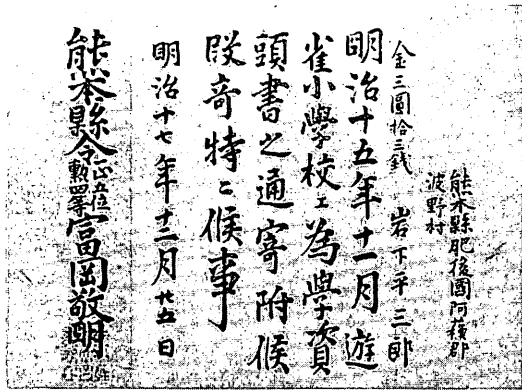 熊本縣肥後國阿蘓郡
波野村
岩下平三郎
金三圓拾三銭
明治十五年十一月遊
雀小學校エ為學資
頭書之通寄附候
段奇特ニ候事
明治十七年十二月廿五日
熊本縣令正五位勲四等富岡敬明